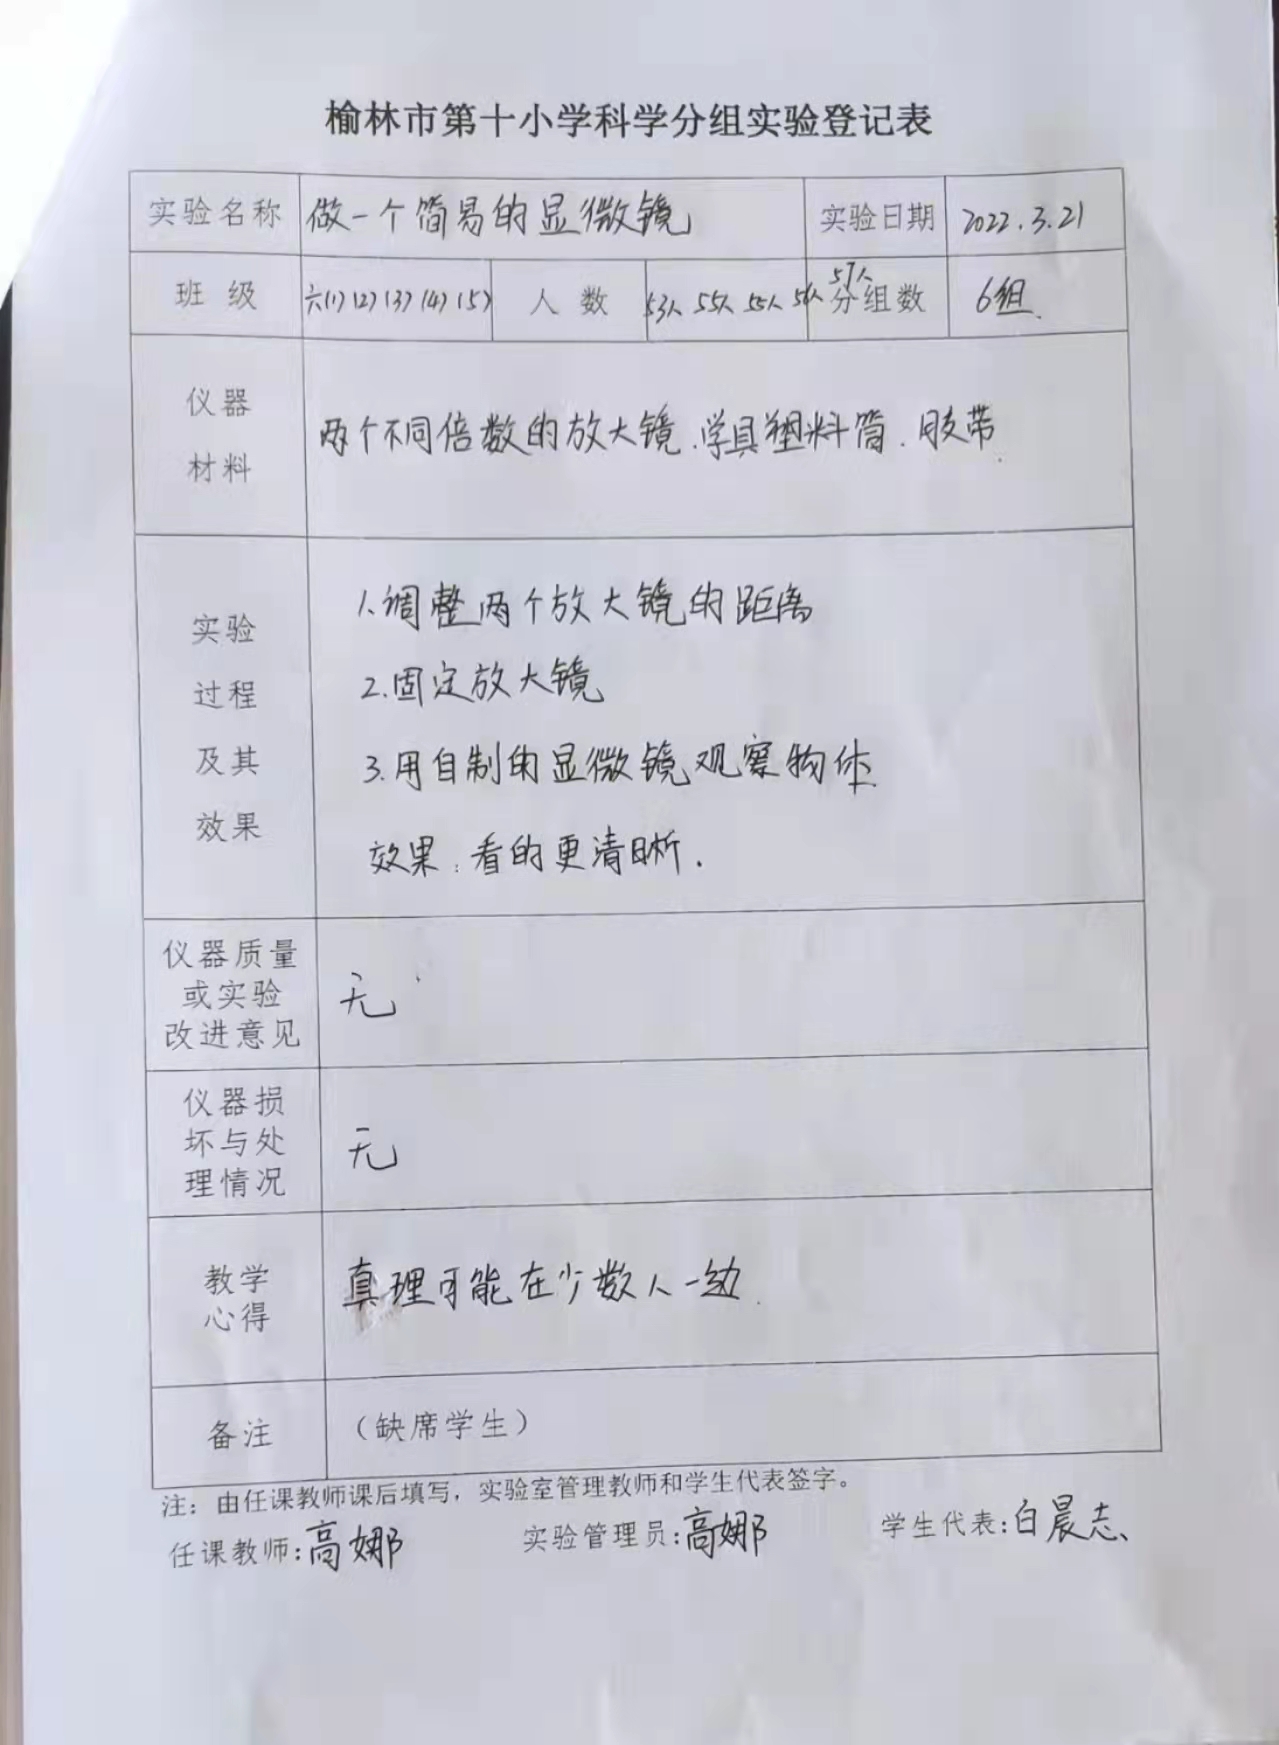 榆林市第十小学科学分组实验登记表
实验名称 做一个简易的显微镜 实验日期 2022.3.21
班 级 六(1)(2)(3)(4)(5) 人 数 53人 55人 55人 56人 57人 分组数 6组.
仪器
材料
两个不同倍数的放大镜.学具塑料筒.胶带.
实验
过程
及其
效果
1.调整两个放大镜的距离
2.固定放大镜
3.用自制的显微镜观察物体.
效果:看的更清晰.
仪器质量
或实验
改进意见
无
仪器损
坏与处
理情况
无
教学
心得
真理可能在少数人一边.
备注 (缺席学生)
注:由任课教师课后填写,实验室管理教师和学生代表签字。
任课教师:高娜 实验管理员:高娜 学生代表:白晨志